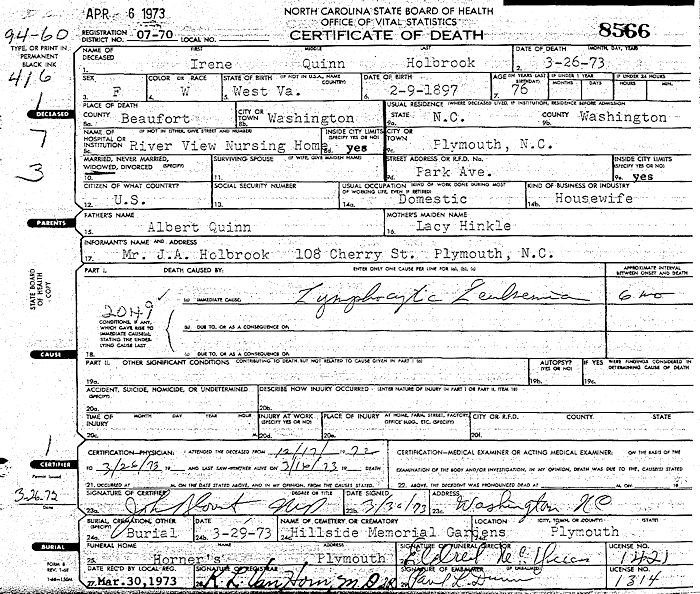 APR 6 1973
NORTH CAROLINA STATE BOARD OF HEALTH
OFFICE OF VITAL STATISTICS
REGISTRATION DISTRICT NO. 07-70 LOCAL NO. CERTIFICATE OF DEATH 8566
94-60
TYPE, OR PRINT IN PERMANENT BLACK INK
416
1
DECEASED
7
3
1. NAME OF DECEASED FIRST MIDDLE LAST 2. DATE OF DEATH MONTH, DAY, YEAR
Irene Quinn Holbrook 3-26-73
SEX COLOR OR RACE STATE OF BIRTH (IF NOT IN U.S.A., NAME COUNTRY) DATE OF BIRTH AGE (IN YEARS LAST BIRTHDAY) IF UNDER 1 YEAR IF UNDER 24 HOURS
MONTHS DAYS HOURS MIN.
3. F 4. W 5. West Va. 6. 2-9-1897 7. 76
PLACE OF DEATH USUAL RESIDENCE (WHERE DECEASED LIVED, IF INSTITUTION, RESIDENCE BEFORE ADMISSION)
COUNTY CITY OR TOWN STATE COUNTY
8a. Beaufort 8b. Washington 9a. N.C. 9b. Washington
NAME OF HOSPITAL OR INSTITUTION (IF NOT IN EITHER, GIVE STREET AND NUMBER) INSIDE CITY LIMITS (SPECIFY YES OR NO) CITY OR TOWN
8c. River View Nursing Home 8d. yes 9c. Plymouth, N.C.
MARRIED, NEVER MARRIED, WIDOWED, DIVORCED (SPECIFY) SURVIVING SPOUSE (IF WIFE, GIVE MAIDEN NAME) STREET ADDRESS OR R.F.D. No. INSIDE CITY LIMITS (SPECIFY YES OR NO)
10. 11. 9d. Park Ave. 9e. yes
CITIZEN OF WHAT COUNTRY? SOCIAL SECURITY NUMBER USUAL OCCUPATION (KIND OF WORK DONE DURING MOST OF WORKING LIFE, EVEN IF RETIRED) KIND OF BUSINESS OR INDUSTRY
12. U.S. 13. 14a. Domestic 14b. Housewife
PARENTS
FATHER'S NAME MOTHER'S MAIDEN NAME
15. Albert Quinn 16. Lacy Hinkle
INFORMANT'S NAME AND ADDRESS
17. Mr. J.A. Holbrook 108 Cherry St. Plymouth, N.C.
STATE BOARD OF HEALTH COPY
PART I. DEATH CAUSED BY: ENTER ONLY ONE CAUSE PER LINE FOR (a), (b), (c) APPROXIMATE INTERVAL BETWEEN ONSET AND DEATH
2049
(a) IMMEDIATE CAUSE: Lymphocytic Leukemia 6 mo
CONDITIONS, IF ANY, WHICH GAVE RISE TO IMMEDIATE CAUSE (a), STATING THE UNDERLYING CAUSE LAST
(b) DUE TO, OR AS A CONSEQUENCE OF,
CAUSE
18. (c) DUE TO, OR AS A CONSEQUENCE OF,
PART II. OTHER SIGNIFICANT CONDITIONS CONTRIBUTING TO DEATH BUT NOT RELATED TO CAUSE GIVEN IN PART I (a) AUTOPSY? (YES OR NO) IF YES WERE FINDINGS CONSIDERED IN DETERMINING CAUSE OF DEATH
19a. 19b. 19c.
ACCIDENT, SUICIDE, HOMICIDE, OR UNDETERMINED (SPECIFY) DESCRIBE HOW INJURY OCCURRED (ENTER NATURE OF INJURY IN PART I OR PART II, ITEM 18)
20a. 20b.
TIME OF INJURY MONTH DAY YEAR HOUR INJURY AT WORK (SPECIFY YES OR NO) PLACE OF INJURY AT HOME, FARM, STREET, FACTORY, OFFICE BLDG., ETC. (SPECIFY) CITY OR R.F.D. COUNTY STATE
20c. 20d. 20e. 20f.
1
CERTIFIER
CERTIFICATION-PHYSICIAN: I ATTENDED THE DECEASED FROM 12/17 1972 CERTIFICATION-MEDICAL EXAMINER OR ACTING MEDICAL EXAMINER: ON THE BASIS OF THE
TO 3/26/73 19 AND LAST SAW HIM/HER ALIVE ON 3/16/73 DEATH EXAMINATION OF THE BODY AND/OR INVESTIGATION, IN MY OPINION, DEATH WAS DUE TO THE CAUSE(S) STATED
21. OCCURRED AT M. ON THE DATE STATED ABOVE, AND IN MY OPINION, FROM THE CAUSES STATED. 22. ABOVE. THE DECEDENT WAS PRONOUNCED DEAD AT M. ON 19
Permit Issued
3-26-72
Date
SIGNATURE OF CERTIFIER DEGREE OR TITLE DATE SIGNED ADDRESS
23a. 23b. 3/30/73 23c. Washington NC
BURIAL, CREMATION, OTHER (SPECIFY) DATE NAME OF CEMETERY OR CREMATORY LOCATION (CITY, TOWN, OR COUNTY) (STATE)
24a. Burial 24b. 3-29-73 24c. Hillside Memorial Gardens Plymouth
BURIAL
FUNERAL HOME NAME ADDRESS SIGNATURE OF FUNERAL DIRECTOR LICENSE NO.
25. Horner's Plymouth 1421
FORM 8
REV. 1-68
DATE REC'D BY LOCAL REG. SIGNATURE OF REGISTRAR SIGNATURE OF EMBALMER LICENSE NO.
27. Mar. 30, 1973 1314